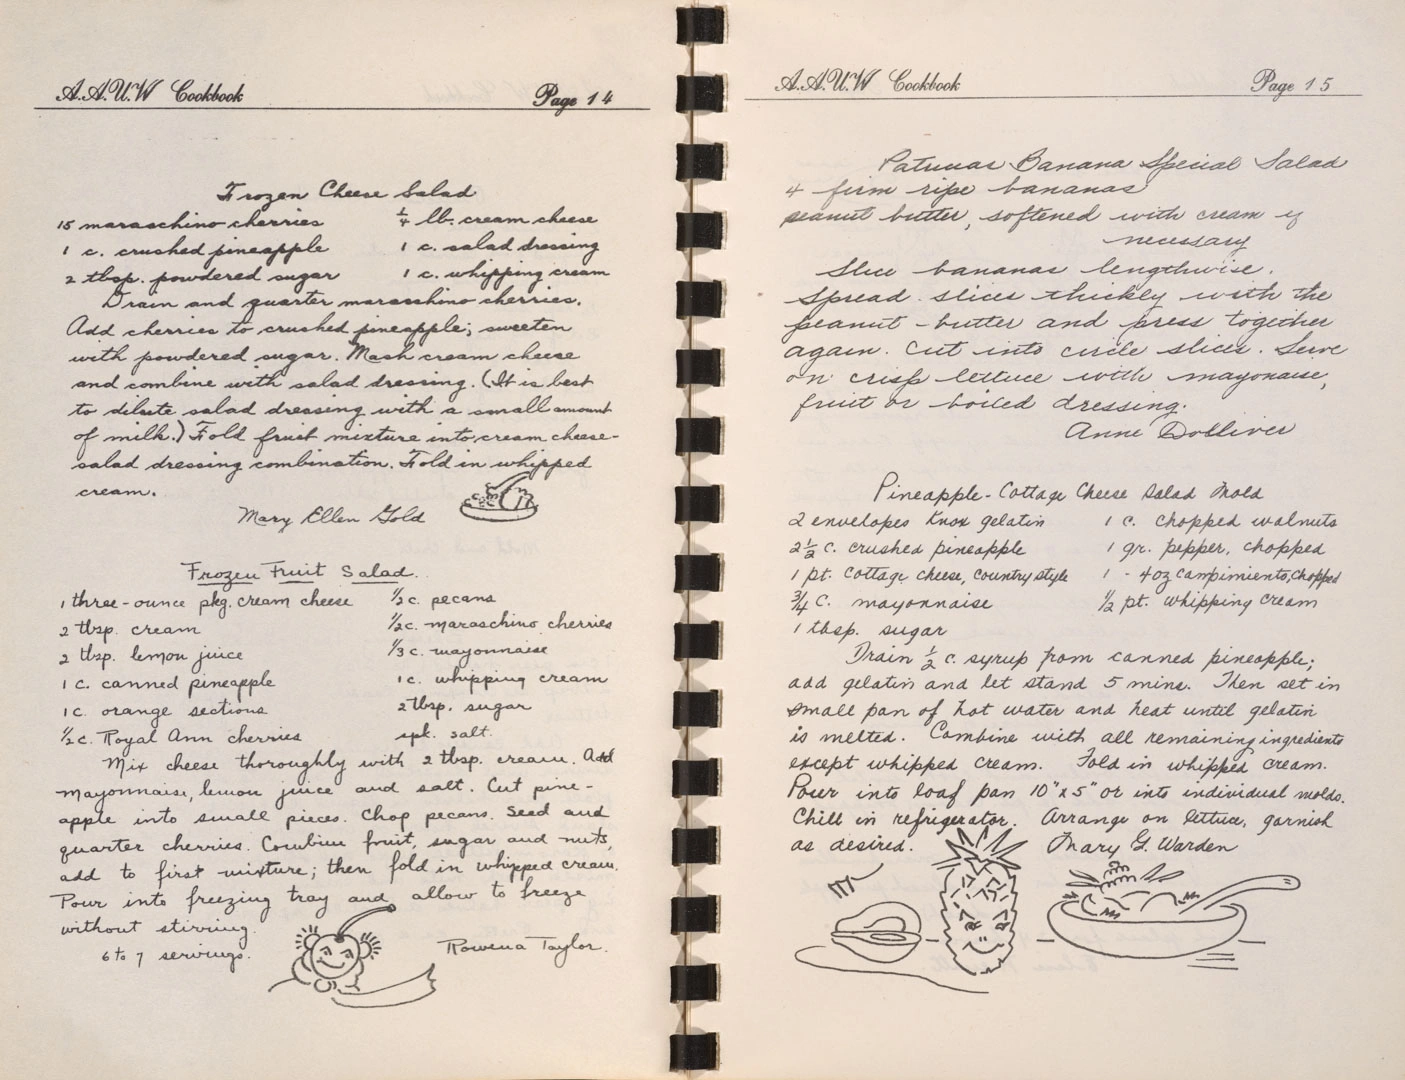 A.A.U.W Cookbook Page 14
Frozen Cheese Salad
15 maraschino cherries ¼ lb. cream cheese
1 c. crushed pineapple 1 c. salad dressing
2 tbsp. powdered sugar 1 c. whipping cream
Drain and quarter maraschino cherries.
Add cherries to crushed pineapple; sweeten
with powdered sugar. Mash cream cheese
and combine with salad dressing. (It is best
to dilute salad dressing with a small amount
of milk.) Fold fruit mixture into cream cheese-
salad dressing combination. Fold in whipped
cream.
Mary Ellen Gold
Frozen Fruit Salad.
1 three-ounce pkg. cream cheese ½ c. pecans
2 tbsp. cream ½ c. maraschino cherries
2 tbsp. lemon juice ⅓ c. mayonnaise
1 c. canned pineapple 1 c. whipping cream
1 c. orange sections 2 tbsp. sugar
½ c. Royal Ann cherries spk. salt.
Mix cheese thoroughly with 2 tbsp. cream. Add
mayonnaise, lemon juice and salt. Cut pine-
apple into small pieces. Chop pecans. Seed and
quarter cherries. Combine fruit, sugar and nuts,
add to first mixture; then fold in whipped cream.
Pour into freezing tray and allow to freeze
without stirring.
6 to 7 servings. Rowena Taylor.
A.A.U.W Cookbook Page 15
Banana Special Salad
4 firm ripe bananas
peanut butter, softened with cream if
necessary
Slice bananas lengthwise.
Spread slices thickly with the
peanut-butter and press together
again. Cut into circle slices. Serve
on crisp lettuce with mayonaise,
fruit or boiled dressing.
Anne Dolliver
Pineapple-Cottage Cheese Salad Mold
2 envelopes Knox gelatin 1 c. chopped walnuts
2½ c. crushed pineapple 1 gr. pepper, chopped
1 pt. cottage cheese, country style 1 - 4oz can pimientos, chopped
¾ c. mayonnaise ½ pt. whipping cream
1 tbsp. sugar
Drain ½ c. syrup from canned pineapple;
add gelatin and let stand 5 mins. Then set in
small pan of hot water and heat until gelatin
is melted. Combine with all remaining ingredients
except whipped cream. Fold in whipped cream.
Pour into loaf pan 10" x 5" or into individual molds.
Chill in refrigerator. Arrange on lettuce, garnish
as desired. Mary G. Warden